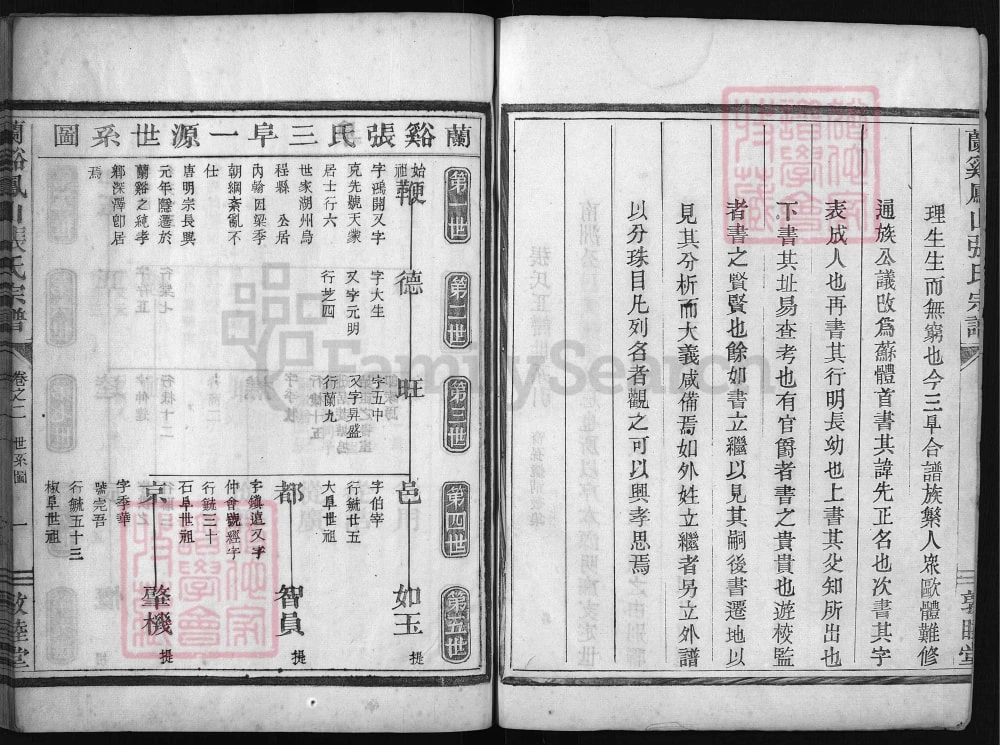 理生生而無窮也今三阜合譜族繁人衆歐體難修
通族公議改爲蘇體首書其諱先正名也次書其字
表成人也再書其行明長幼也上書其父知所出也
下書其址易查考也有官爵者書之貴貴也遊校監
者書之賢賢也餘如書立繼以見其嗣後書遷地以
見其分析而大義咸備焉如外姓立繼者另立外譜
以分珠目凡列名者觀之可以興孝思焉
蘭谿鳳山張氏宗譜
敦睦堂
蘭谿張氏三阜一源世系圖
第一世
第二世
第三世
第四世
第五世
始祖
鞭
字鴻開又字
克先號天蒙
居士行六
世家湖州烏
程縣 公居
內翰因梁季
朝綱紊亂不
仕
唐明宗長興
元年隱遷於
蘭谿之純孝
鄉深澤卽居
焉
德
字大生
又字元明
行芝四
旺
字五中
又字昇盛
行蘭九
邑
字伯宰
行毓廿五
大阜世祖
如玉
提
都
字鎭遠又字
仲會號經字
行毓三十
石阜世祖
智員
提
京
字季華
號完吾
行毓五十三
椒阜世祖
肇機
提
蘭谿鳳山張氏宗譜
卷之二 世系圖
一
敦睦堂
FamilySearch